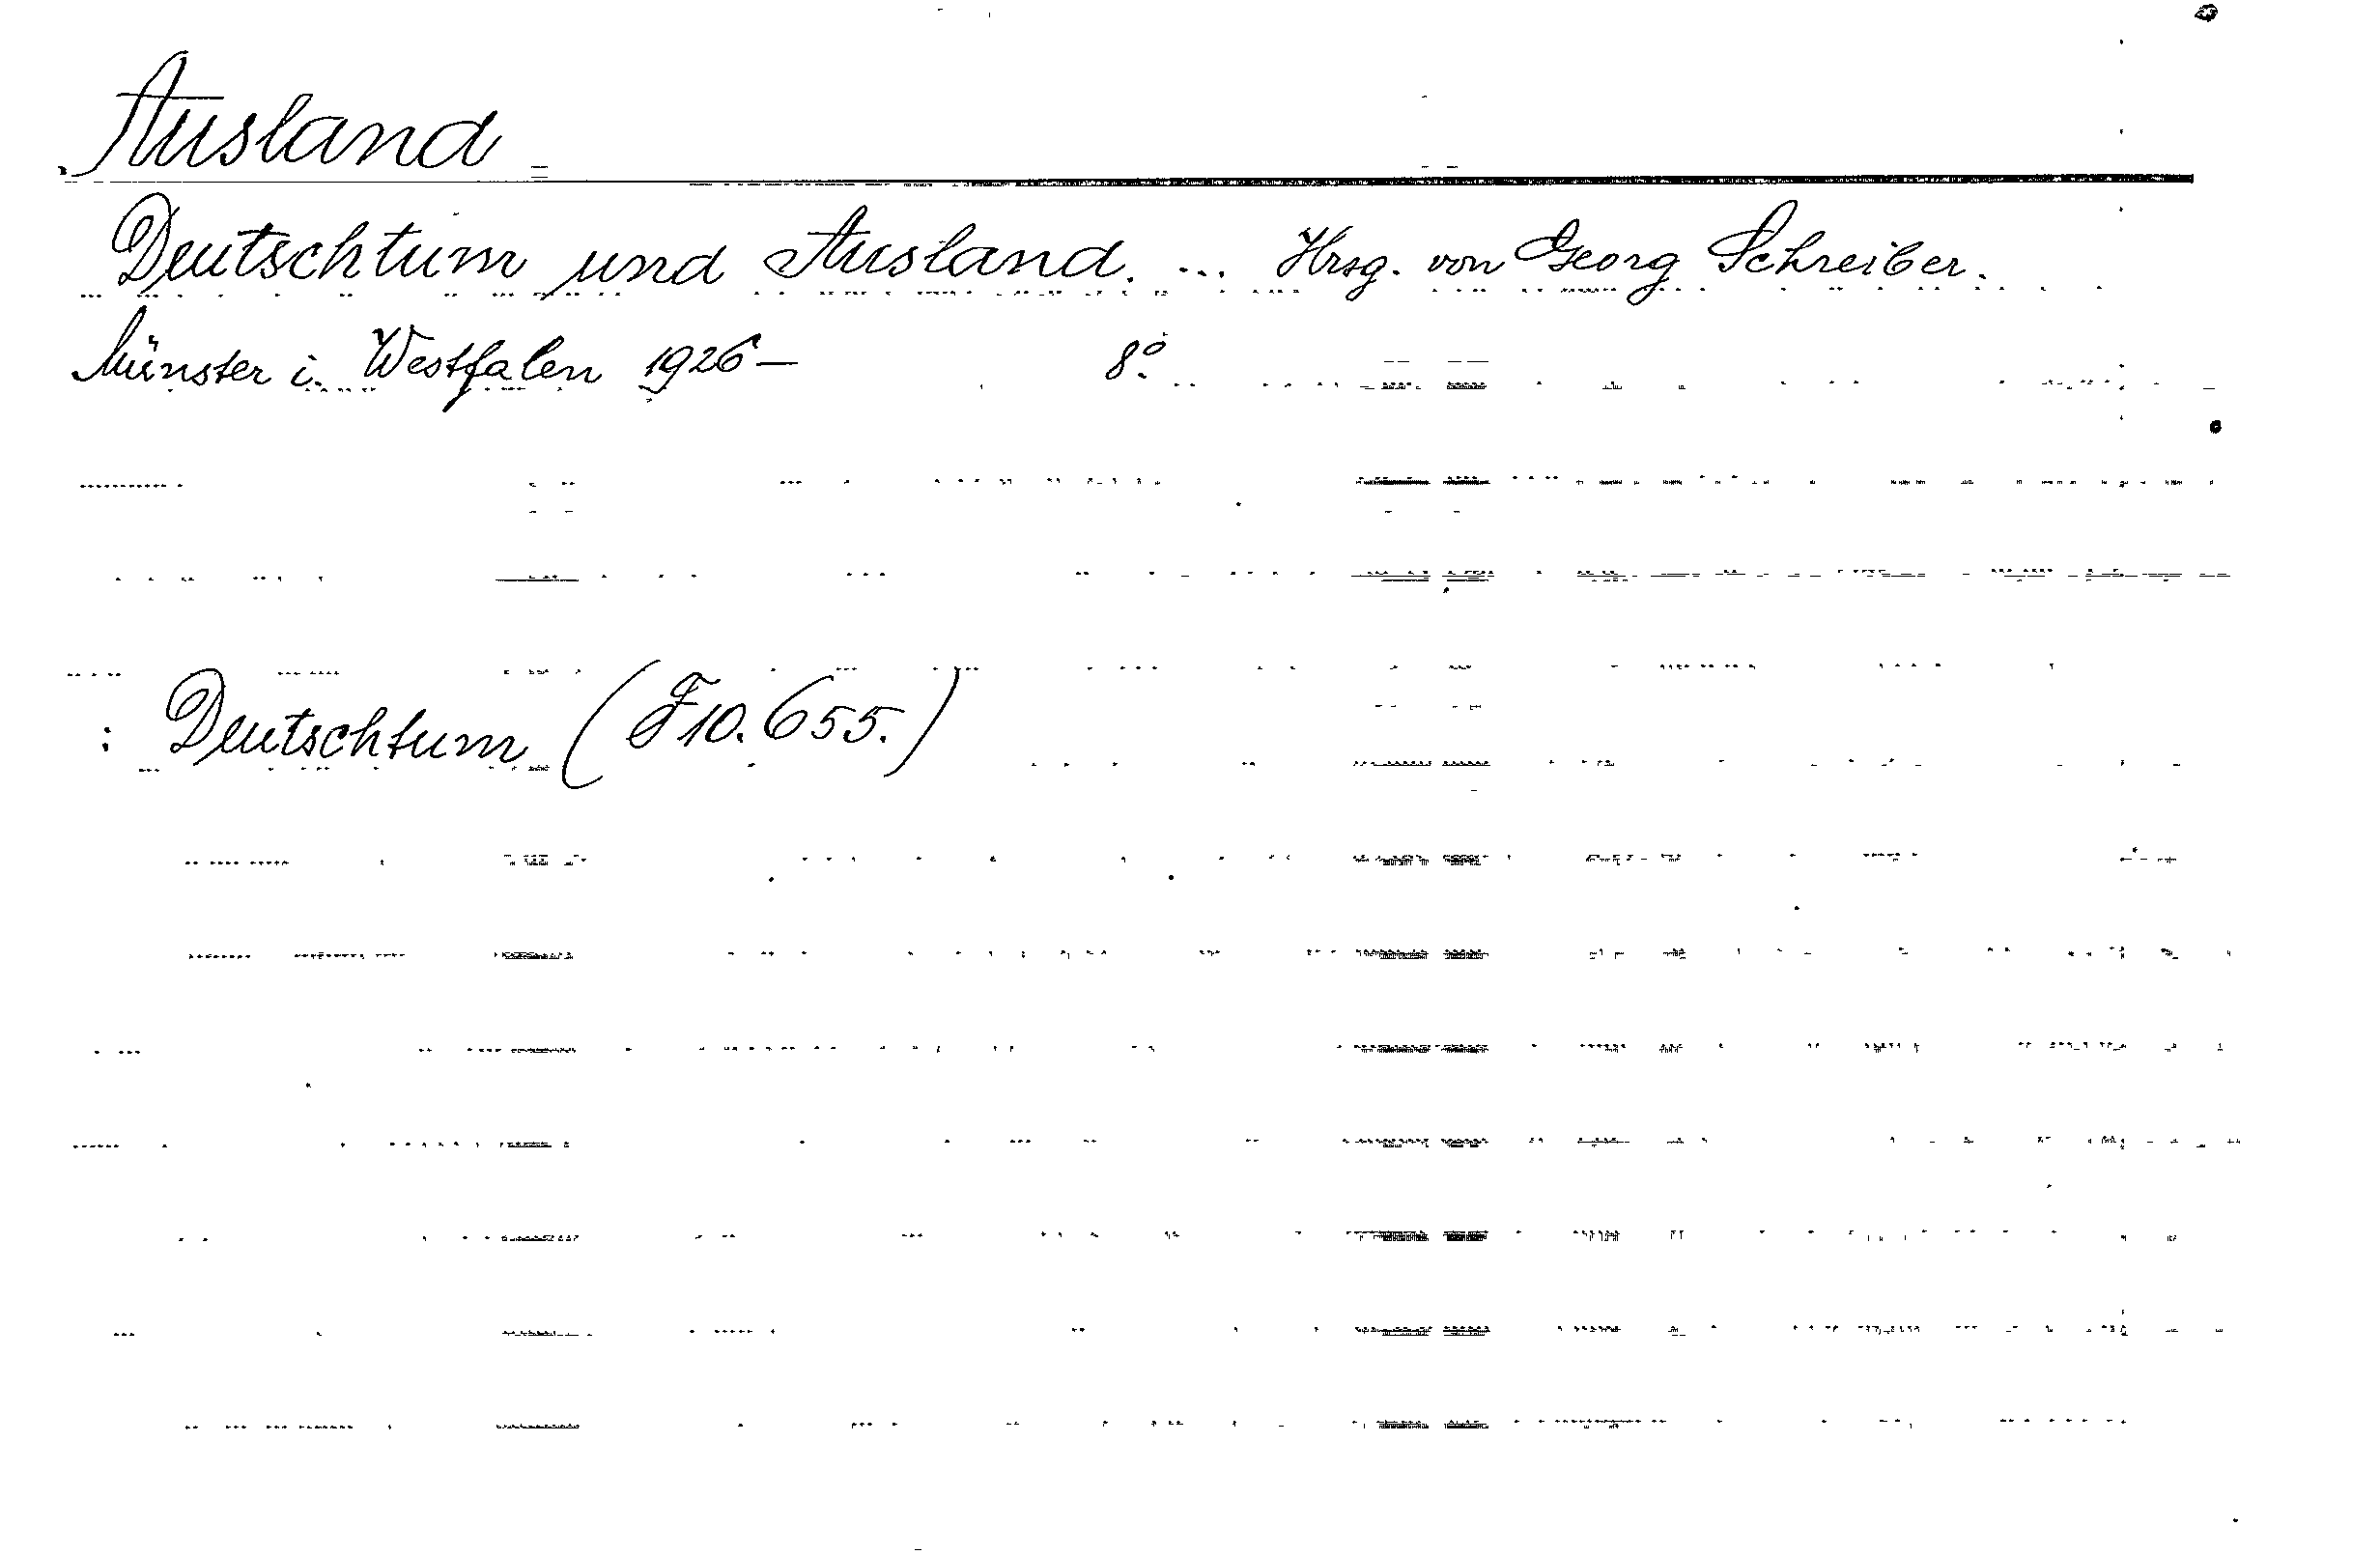 Ausland
Deutschtum und Ausland. ... Hrsg. von Georg Schreiber.
Münster i. Westfalen 1926— 8º.
: Deutschtum (F10.655.)